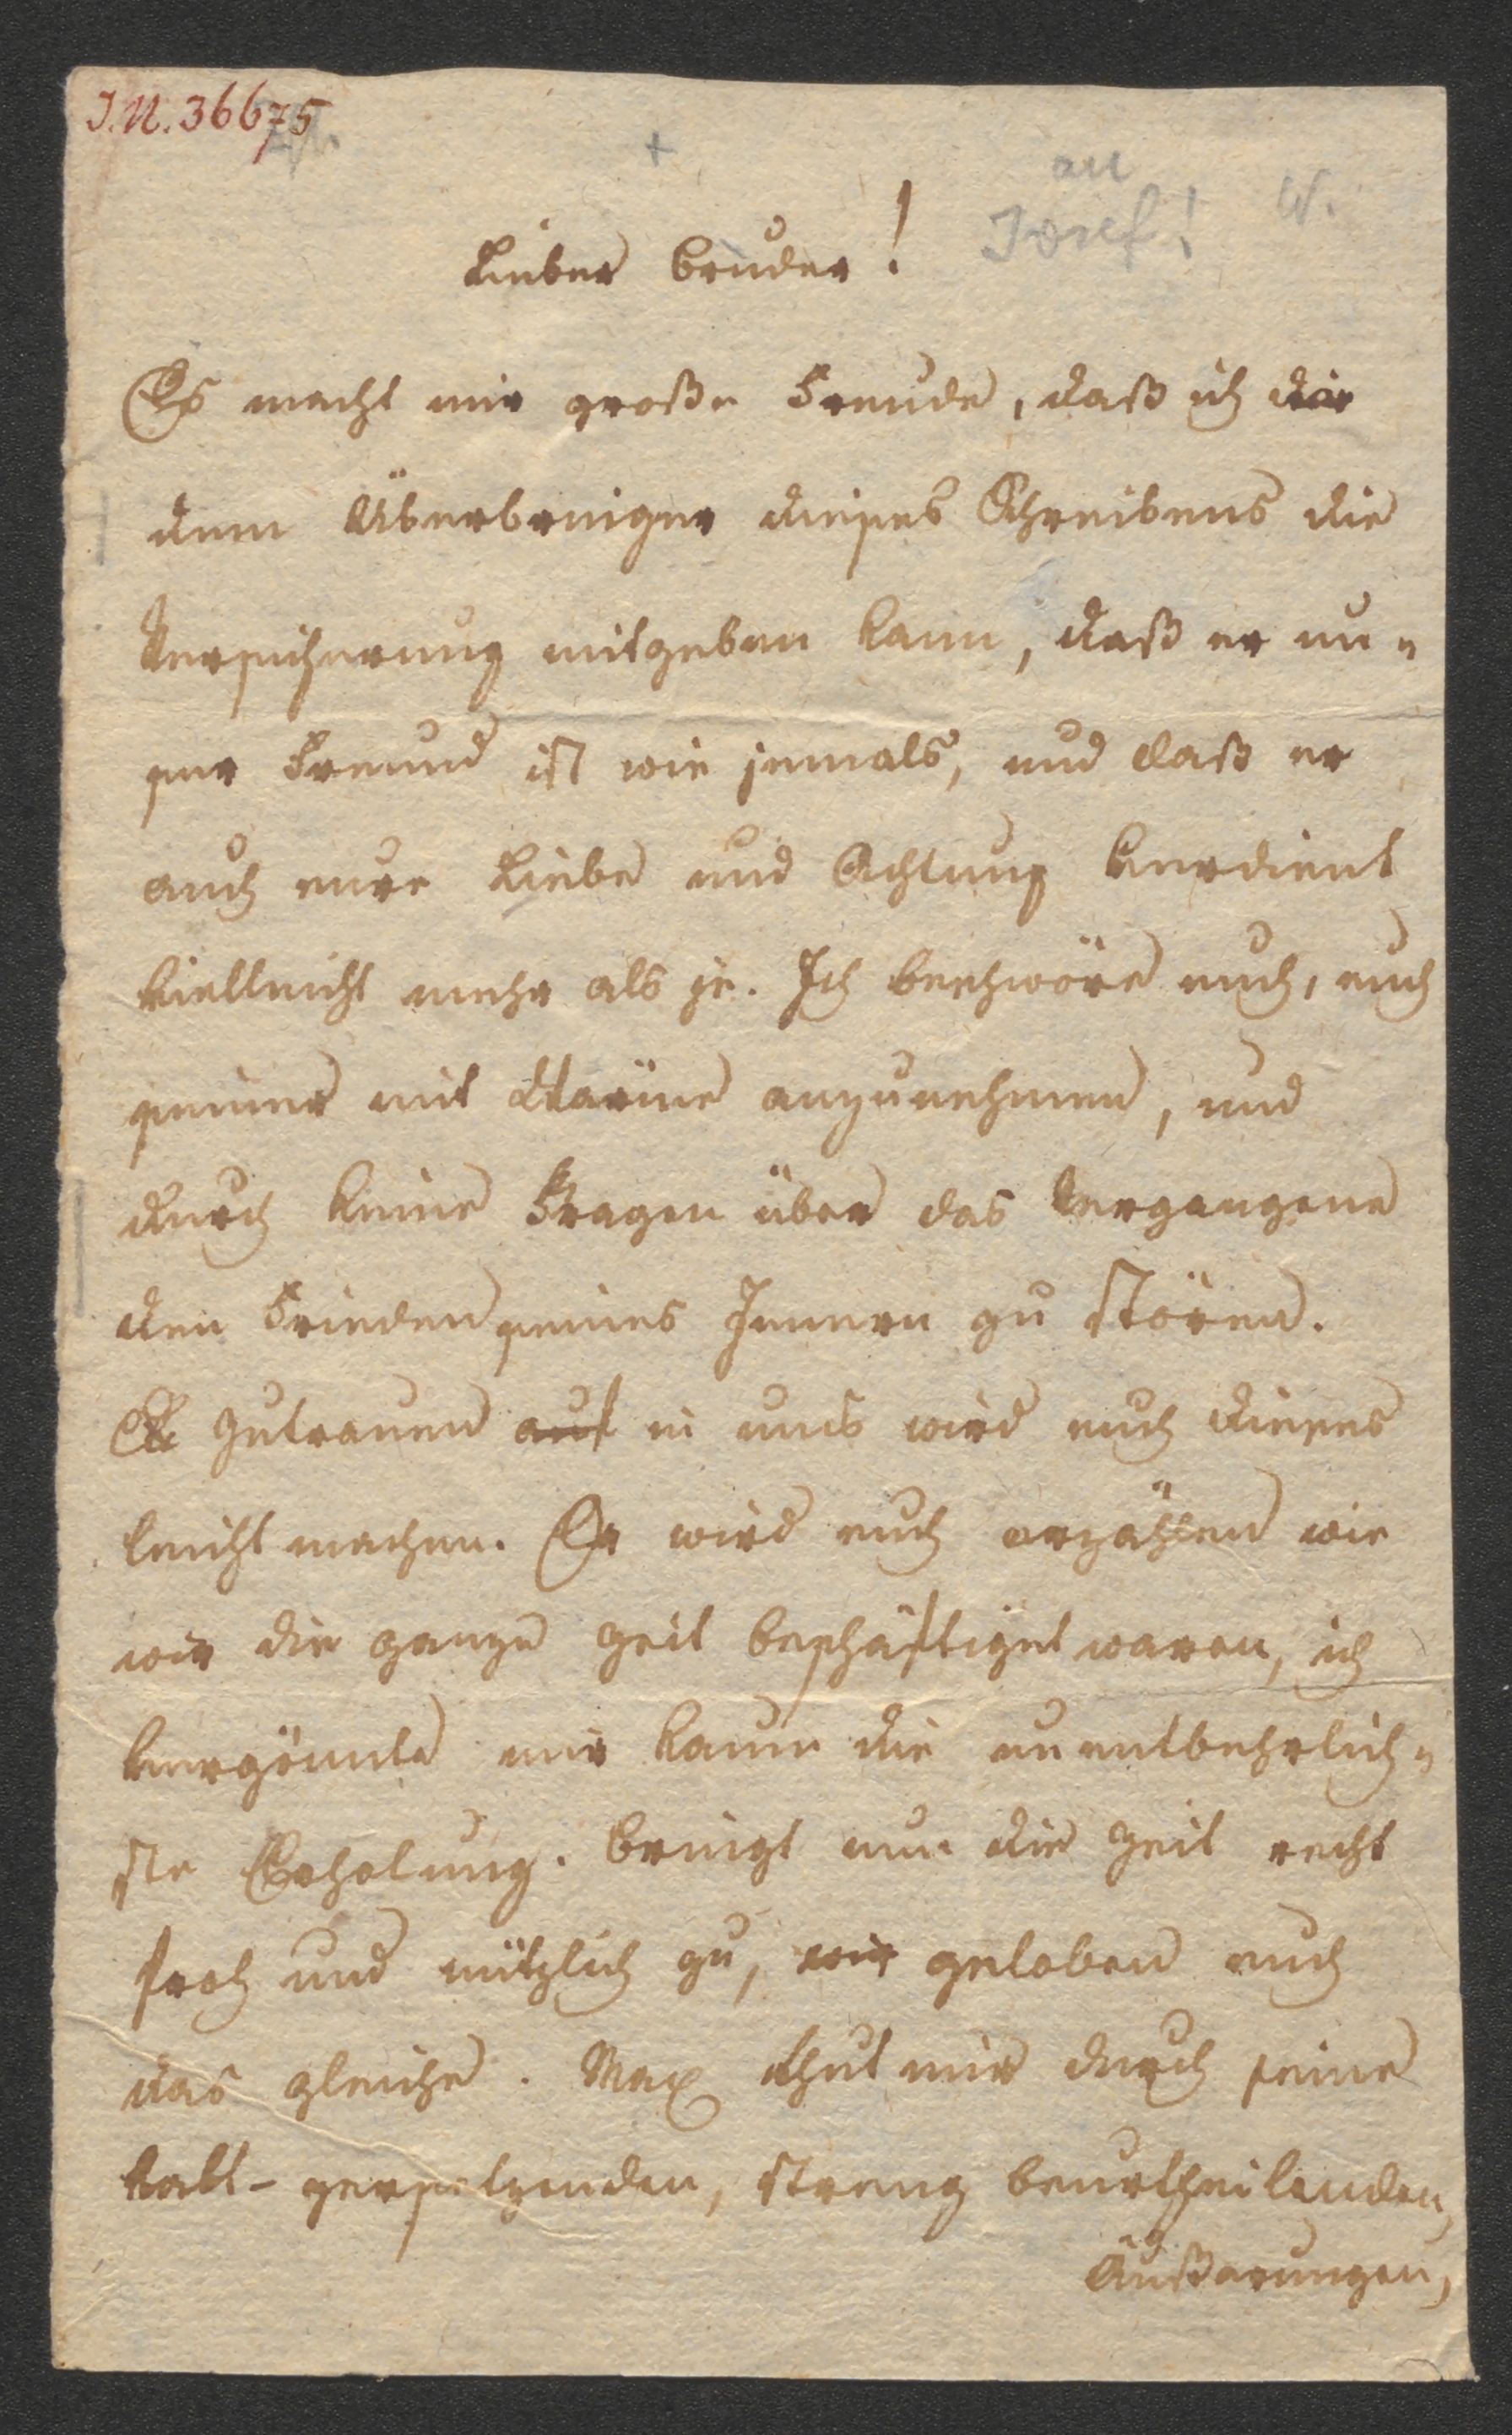 J.N. 36675
+
an
Josef!
W.
Lieber Bruder!
Es macht mir große Freude, daß ich dir
dem Überbringer dieses Schreibens die
Versicherung mitgeben kann, daß er un=
ser Freund ist wie jemals, und daß er
auch eure Liebe und Achtung verdient
vielleicht mehr als je. Ich beschwöre euch, euch
seiner mit Wärme anzunehmen, und
durch keine Fragen über das Vergangene
den Frieden seines Innern zu stören.
Zutrauen auf in uns wird euch dieses
leicht machen. Er wird euch erzählen wie
wir die ganze Zeit beschäftiget waren, ich
vergönnte mir kaum die unentbehrlich=
ste Erholung. Bringt nun die Zeit recht
froh und nützlich zu, wir geloben euch
das gleiche. Max thut mir durch seine
kalt-zersetzenden, streng beurtheilenden,
Äußerungen,